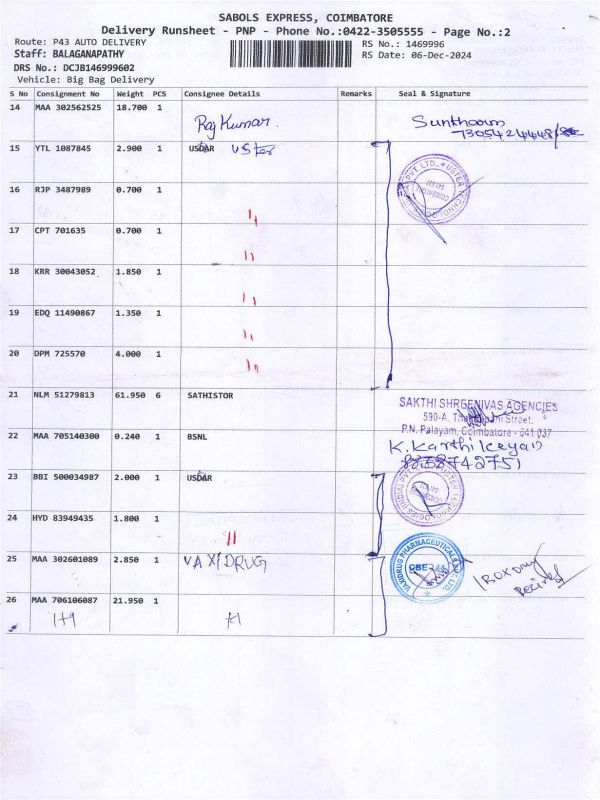 SABOLS EXPRESS, COIMBATORE
Delivery Runsheet - PNP - Phone No.:0422-3505555 - Page No.:2
Route: P43 AUTO DELIVERY
RS No.: 1469996
Staff: BALAGANAPATHY
RS Date: 06-Dec-2024
DRS No.: DCJB146999602
Vehicle: Big Bag Delivery
S No Consignment No Weight PCS Consignee Details Remarks Seal & Signature
14 MAA 302562525 18.700 1 Raj Kumar
7305424448
15 YTL 1087845 2.900 1
16 RJP 3487989 0.700 1 "
17 CPT 701635 0.700 1 "
18 KRR 30043052 1.850 1 "
19 EDQ 11490867 1.350 1 "
20 DPM 725570 4.000 1 "
21 NLM 51279813 61.950 6 SATHISTOR
SAKTHI SHREENIVAS AGENCIES
590-A, Street,
P.N. Palayam, Coimbatore - 641 037
22 MAA 705140300 0.240 1 BSNL
K. Karthikeyan
23 BBI 500034987 2.000 1
24 HYD 83949435 1.800 1 "
25 MAA 302601089 2.850 1 VAXI DRUG
VAXIDRUG PHARMACEUTICAL
CBE
1 BOX Only
26 MAA 706106087 21.950 1